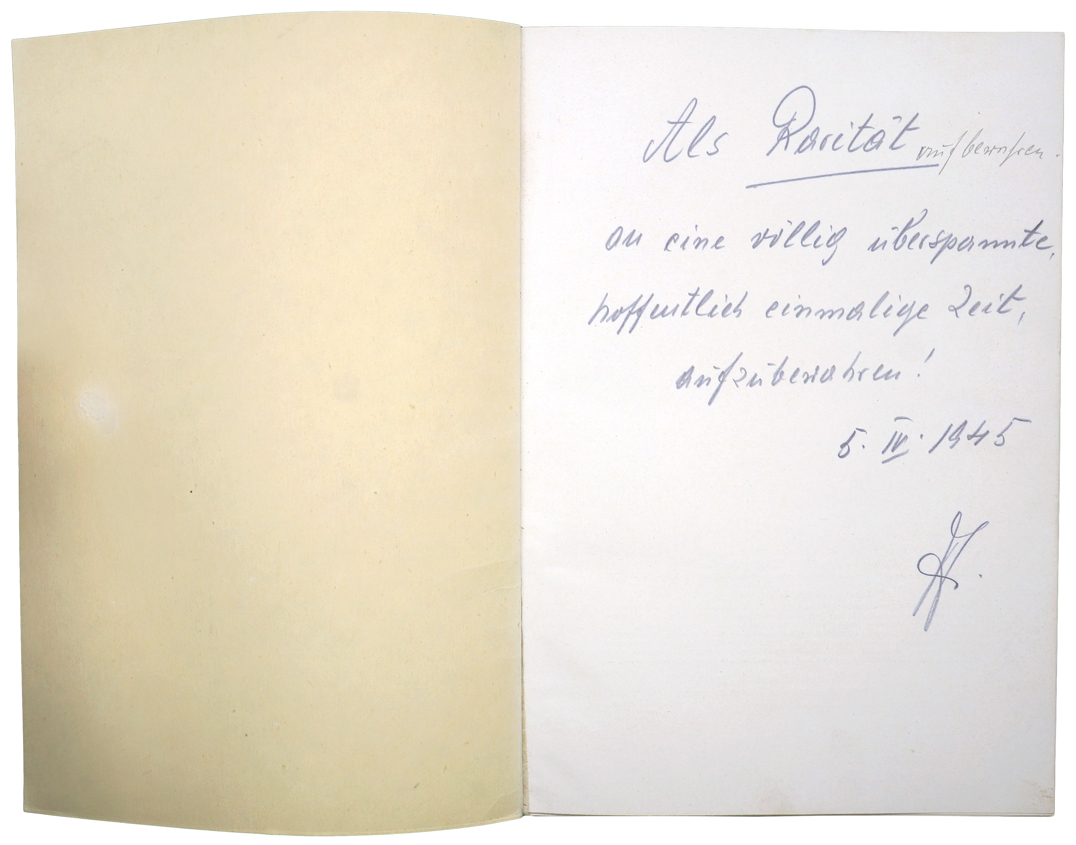 Als Rarität aufbewahren.
an eine völlig überspannte,
hoffentlich einmalige Zeit,
aufzubewahren!
5. IV. 1945